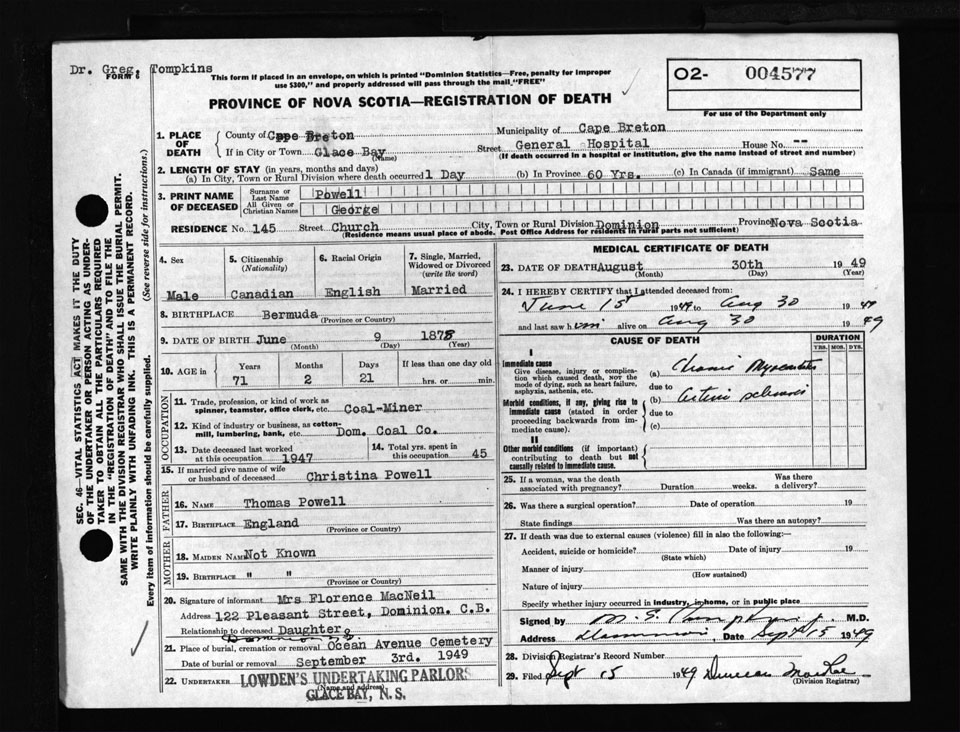 Dr. Greg. Tompkins
FORM
This form if placed in an envelope, on which is printed "Dominion Statistics—Free, penalty for improper
use $300," and properly addressed will pass through the mail "FREE"
PROVINCE OF NOVA SCOTIA—REGISTRATION OF DEATH
O2- 004577
For use of the Department only
SEC. 46—VITAL STATISTICS ACT MAKES IT THE DUTY
OF THE UNDERTAKER OR PERSON ACTING AS UNDER-
TAKER TO OBTAIN ALL THE PARTICULARS REQUIRED
IN THE "REGISTRATION OF DEATH" AND TO FILE THE
SAME WITH THE DIVISION REGISTRAR WHO SHALL ISSUE THE BURIAL PERMIT.
WRITE PLAINLY WITH UNFADING INK. THIS IS A PERMANENT RECORD.
Every item of information should be carefully supplied. (See reverse side for instructions.)
1. PLACE OF DEATH
County of Cape Breton Municipality of Cape Breton
If in City or Town Glace Bay Street General Hospital House No. --
(Name) (If death occurred in a hospital or institution, give the name instead of street and number)
2. LENGTH OF STAY (in years, months and days)
(a) In City, Town or Rural Division where death occurred 1 Day (b) In Province 60 Yrs. (c) In Canada (if immigrant) Same
3. PRINT NAME OF DECEASED
Surname or Last Name Powell
All Given or Christian Names George
RESIDENCE No. 145 Street Church City, Town or Rural Division Dominion Province Nova Scotia
(Residence means usual place of abode. Post Office Address for residents in rural parts not sufficient)
4. Sex Male
5. Citizenship (Nationality) Canadian
6. Racial Origin English
7. Single, Married, Widowed or Divorced (write the word) Married
8. BIRTHPLACE Bermuda
(Province or Country)
9. DATE OF BIRTH June 9 1878
(Month) (Day) (Year)
10. AGE in Years 71 Months 2 Days 21 If less than one day old hrs. or min.
OCCUPATION
11. Trade, profession, or kind of work as
spinner, teamster, office clerk, etc. Coal-Miner
12. Kind of industry or business, as cotton-
mill, lumbering, bank, etc. Dom. Coal Co.
13. Date deceased last worked
at this occupation 1947
14. Total yrs. spent
in this occupation 45
15. If married give name of wife
or husband of deceased Christina Powell
FATHER
16. NAME Thomas Powell
17. BIRTHPLACE England
(Province or Country)
MOTHER
18. MAIDEN NAME Not Known
19. BIRTHPLACE " "
(Province or Country)
20. Signature of informant Mrs Florence MacNeil
Address 122 Pleasant Street, Dominion. C.B.
Relationship to deceased Daughter
21. Place of burial, cremation or removal Ocean Avenue Cemetery
Date of burial or removal September 3rd. 1949
22. UNDERTAKER LOWDEN'S UNDERTAKING PARLORS
(Name and address)
GLACE BAY, N. S.
MEDICAL CERTIFICATE OF DEATH
23. DATE OF DEATH August 30th 1949
(Month) (Day) (Year)
24. I HEREBY CERTIFY that I attended deceased from:
June 15 1949 to Aug 30 1949
and last saw him alive on Aug 30 1949
CAUSE OF DEATH DURATION
YRS. MOS. DYS.
I
Immediate cause
Give disease, injury or complica-
tion which caused death, NOT the
mode of dying, such as heart failure,
asphyxia, asthenia, etc.
(a) Chronic Myocarditis
due to
Morbid conditions, if any, giving rise to
immediate cause (stated in order
proceeding backwards from im-
mediate cause).
(b) Arterio sclerosis
due to
(c)
II
Other morbid conditions (if important)
contributing to death but not
causally related to immediate cause.
25. If a woman, was the death
associated with pregnancy? Duration weeks. Was there
a delivery?
26. Was there a surgical operation? Date of operation 19
State findings Was there an autopsy?
27. If death was due to external causes (violence) fill in also the following:
Accident, suicide or homicide? Date of injury 19
(State which)
Manner of injury
(How sustained)
Nature of injury
Specify whether injury occurred in industry, in home, or in public place
Signed by M. G. Tompkins M.D.
Address Dominion Date Sept 15 1949
28. Division Registrar's Record Number
29. Filed Sept 15 1949 Duncan MacRae
(Division Registrar)